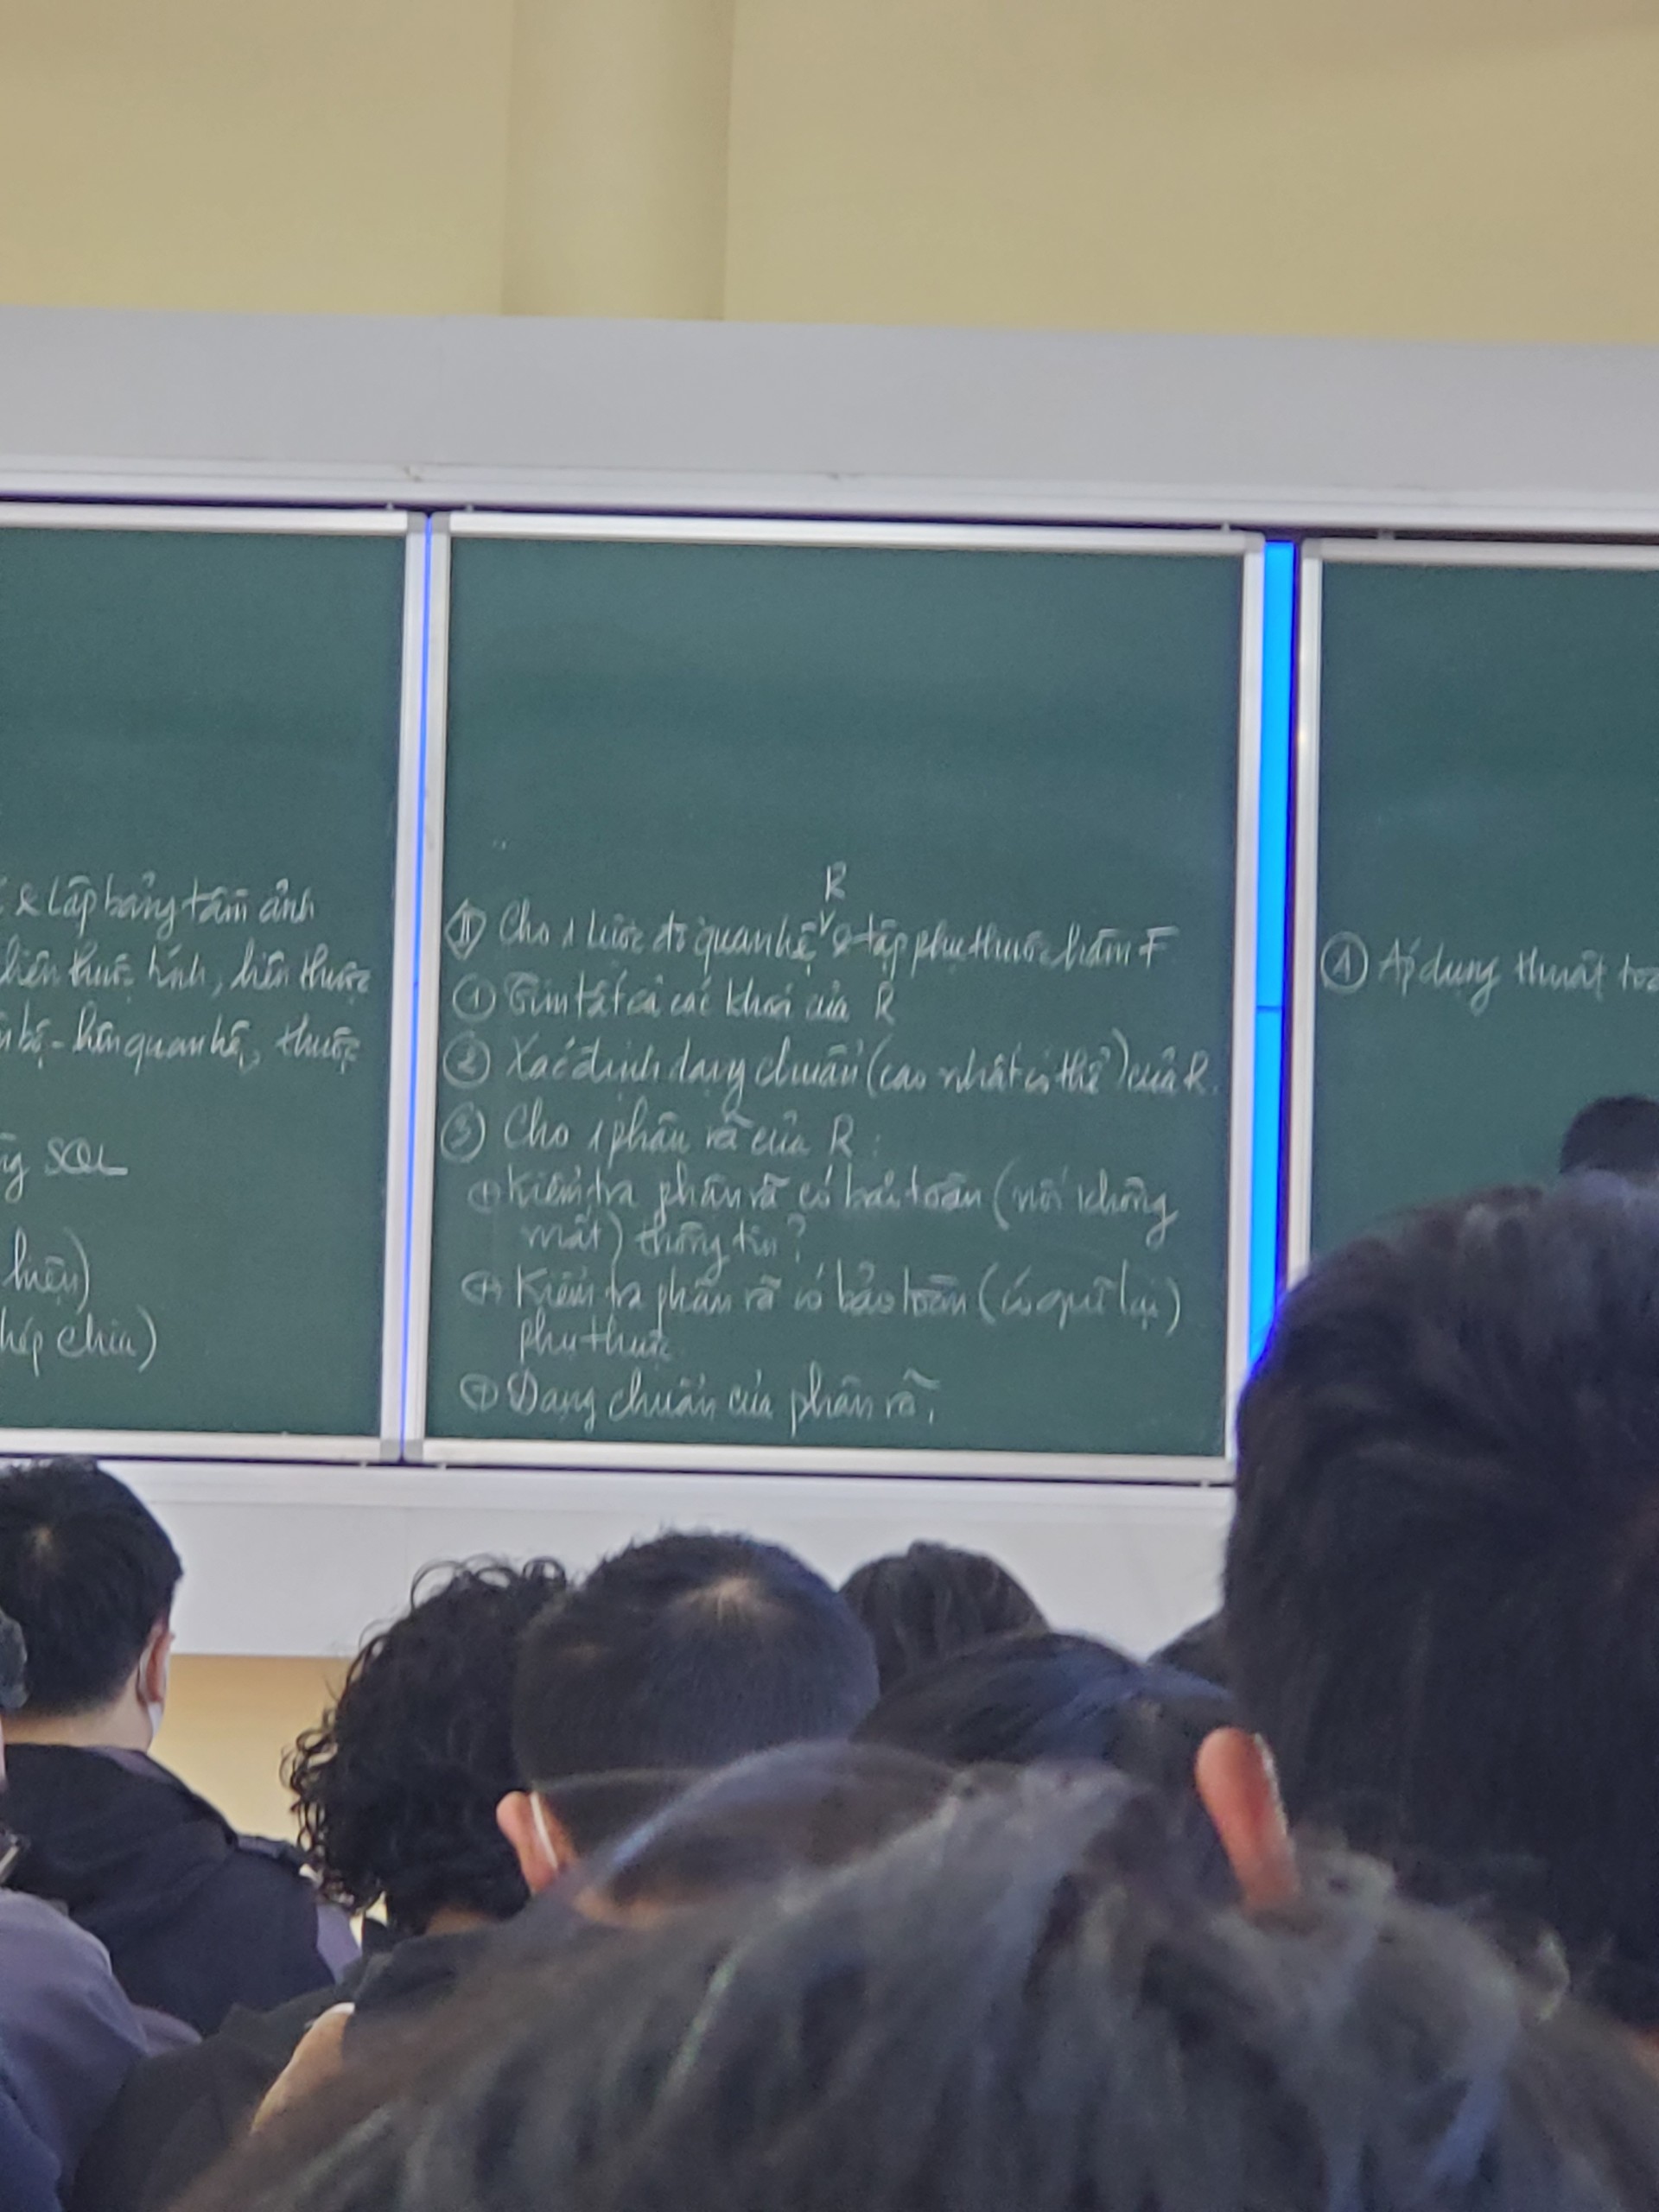 & lập bảng tầm ảnh
thuộc tính, liên thuộc
quan hệ, thuộc
SQL
hiện)
hép chia)
R
II Cho 1 lược đồ quan hệ v & tập phụ thuộc hàm F
① Tìm tất cả các khoá của R
② Xác định dạng chuẩn (cao nhất có thể) của R.
③ Cho 1 phân rã của R:
+ Kiểm tra phân rã có bảo toàn (nối không
mất) thông tin?
+ Kiểm tra phân rã có bảo toàn (có quĩ lại)
phụ thuộc
+ Dạng chuẩn của phân rã,
① Áp dụng thuật toá